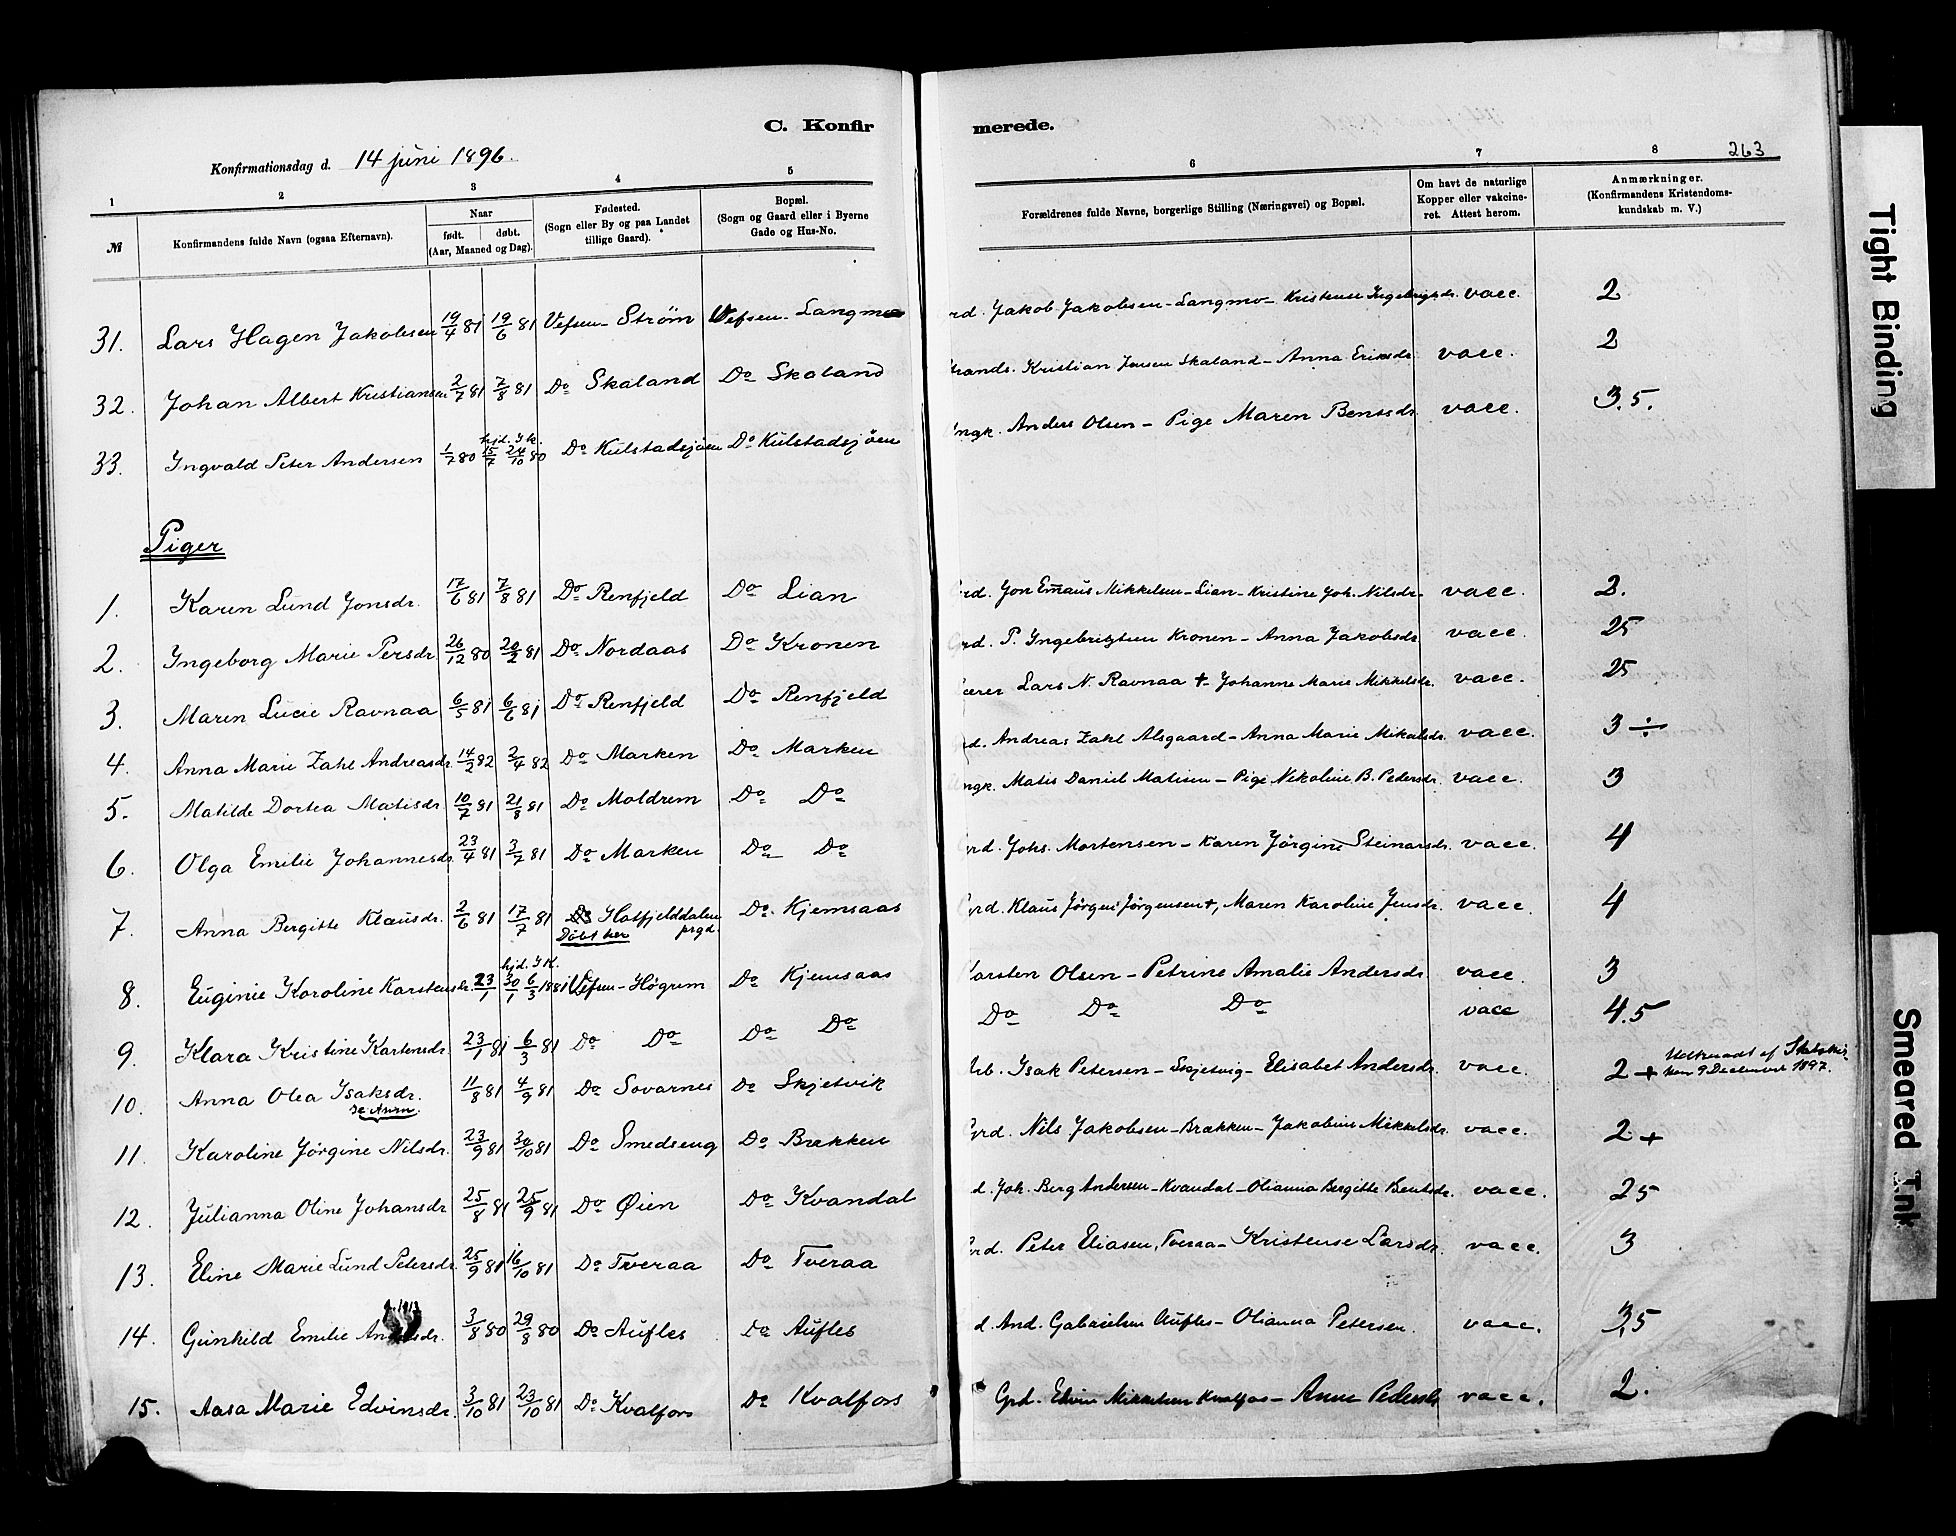 C. Konfir
merede.
Konfirmationsdag d. 14 juni 1896.
263
1 2 3 4 5 6 7 8
№ Konfirmandens fulde Navn (ogsaa Efternavn). Naar født. døbt. (Aar, Maaned og Dag). Fødested. (Sogn eller By og paa Landet tillige Gaard). Bopæl. (Sogn og Gaard eller i Byerne Gade og Hus-No. Forældrenes fulde Navne, borgerlige Stilling (Næringsvei) og Bopæl. Om havt de naturlige Kopper eller vakcineret. Attest herom. Anmærkninger. (Konfirmandens Kristendomskundskab m. V.)
31. Lars Hagen Jakobsen 19/4 81 19/6 81 Vefsen - Strøm Vefsen - Langmo rd. Jakob Jakobsen - Langmo - Kristense Ingebrigtsdr. vacc. 2
32. Johan Albert Kristiansen 2/7 81 7/8 81 Do Skaland Do Skaland trands. Kristian Jensen Skaland - Anna Eriksdr. vacc. 2
33. Ingvald Peter Andersen 1/7 80 hjd. 15/7 I K. 24/10 80 Do Kulstadsjøen Do Kulstadsjøen Ungk. Anders Olsen - Pige Maren Bentsdr. vacc. 3.5.
Piger
1. Karen Lund Jonsdr. 17/6 81 7/8 81 Do Renfjeld Do Lian Grd. Jon Emaus Mikkelsen - Lian - Kristine Joh. Nilsdr. vacc. 2.
2. Ingeborg Marie Persdr. 26/12 80 20/2 81 Do Nordaas Do Kronen Grd. P. Ingebrigtsen Kronen - Anna Jakobsdr. vacc. 25
3. Maren Lucie Ravnaa 6/5 81 6/6 81 Do Renfjeld Do Renfjeld ærer Lars N. Ravnaa † - Johanne Marie Mikkelsdr. vacc. 25
4. Anna Marie Zahl Andreasdr. 14/2 82 2/4 82 Do Marken Do Marken d. Andreas Zahl Alsgaard - Anna Marie Mikalsdr. vacc. 3 ÷
5. Matilde Dortea Matisdr. 10/7 81 21/8 81 Do Moldrem Do Do Ungk. Matis Daniel Matisen - Pige Nikoline B. Petersdr. vacc. 3
6. Olga Emilie Johannesdr. 23/4 81 3/7 81 Do Marken Do Do Grd. Johs. Mortensen - Karen Jørgine Steinarsdr. vacc. 4
7. Anna Bergitte Klausdr. 2/6 81 17/7 81 Do Hatfjelddalen prgd. Døbt her Do. Kjemsaas Grd. Klaus Jørgen Jørgensen †, Maren Karoline Jensdr. vacc. 4
8. Euginie Karoline Karstensdr. 23/1 hjd. 30/1 I K. 6/3 1881 Vefsen - Høgrem Do Kjemsaas Karsten Olsen - Petrine Amalie Andersdr. vacc. 3
9. Klara Kristine Karstensdr. 23/1 81 6/3 81 Do Do Do Do Do Do Do vacc 4.5
10. Anna Olea Isaksdr. 11/8 81 4/9 81 Do Sovarnes Do Skjetvik Arb. Isak Petersen - Skjetvig - Elisabet Andersdr. vacc. 2 + Udtraadt af Statskirken 9 December 1897.
11. Karoline Jørgine Nilsdr. 23/9 81 30/10 81 Do Smedseng Do Brækken Grd. Nils Jakobsen - Brækken - Jakobine Mikkelsdr. vacc. 2 +
12. Julianna Oline Johansdr. 25/8 81 25/9 81 Do Øien Do Kvandal d. Joh. Berg Andersen - Kvandal - Olianna Bergitte Bentsdr. vacc. 25
13. Eline Marie Lund Petersdr. 25/9 81 16/10 81 Do Tveraa Do Tveraa Grd. Peter Eliasen, Tveraa - Kristense Larsdr. vacc. 3
14. Gunhild Emilie Andersdr. 3/8 80 29/8 80 Do Aufles Do Aufles d. And. Gabrielsen Aufles - Olianna Petersen. vacc. 3,5
15. Aasa Marie Edvinsdr. 3/10 81 23/10 81 Do Kvalfors Do Kvalfors Grd. Edvin Mikkelsen Kvalfos - Anne Pedersdr. vacc. 2.
Tight Binding
Smeared Ink